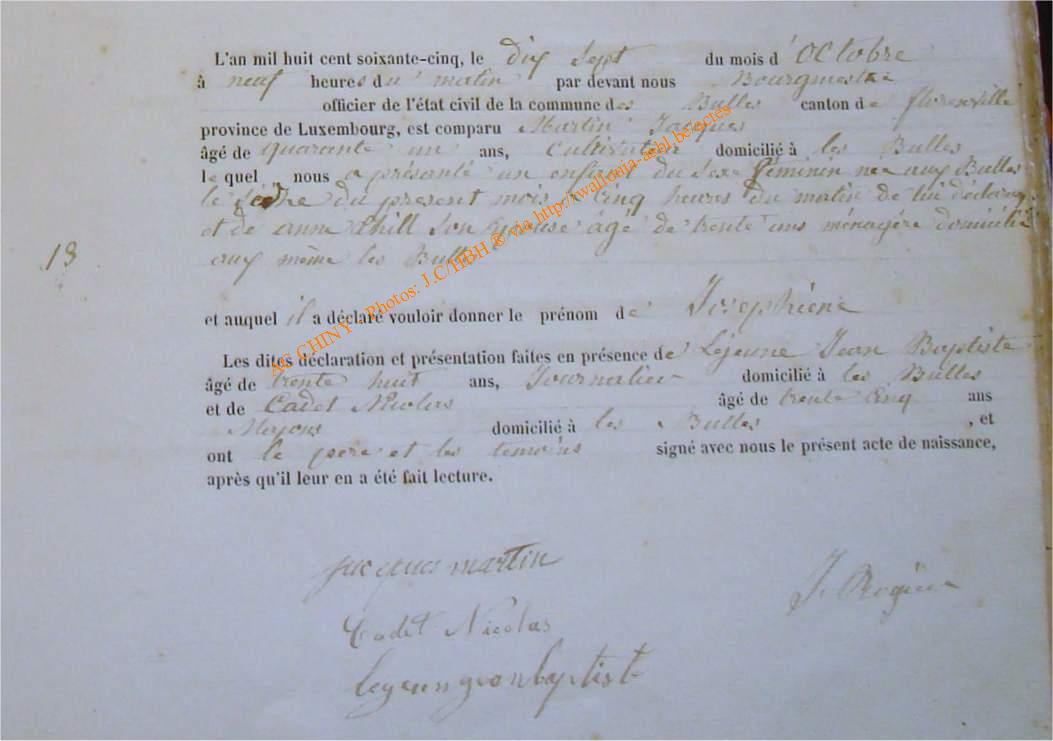 L'an mil huit cent soixante-cinq, le dix sept du mois d'Octobre
à neuf heures du matin par devant nous Bourgmestre
officier de l'état civil de la commune des Bulles canton de florenville
province de Luxembourg, est comparu Martin Jacques
âgé de quarante un ans, Cultivateur domicilié à les Bulles
le quel, nous a présanté un enfant du sexe féminin née aux Bulles
le du présent mois à Cinq heurs du matin de lui déclarant
et de anne thill son épouse âgé de trente ans ménagère domicilié
13
aux même les Bulles
et auquel il a déclaré vouloir donner le prénom de Josephiene
Les dites déclaration et présentation faites en présence de Lejeune Jean Baptiste
âgé de trente huit ans, Journalier domicilié à les Bulles
et de Cadet Nicolas âgé de trente cinq ans
Maçons domicilié à les Bulles, et
ont le père et les temoins signé avec nous le présent acte de naissance,
après qu'il leur en a été fait lecture.
jacques martin
J. Rogier
Cadet Nicolas
lejeun jeanbaptist
AC CHINY - Photos: J.C/HBH ® via http://wallonia-asbl.be/actes